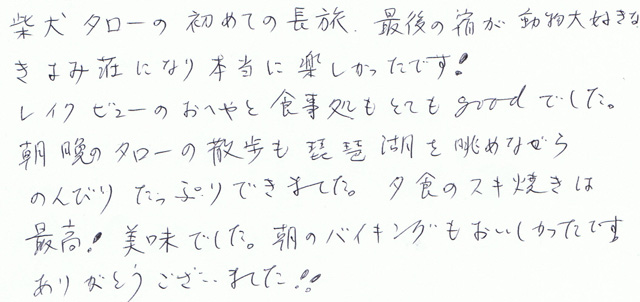 柴犬タローの初めての長旅、最後の宿が動物大好きな
きよみ荘になり本当に楽しかったです!
レイクビューのおへやと食事処もとてもgoodでした。
朝晩のタローの散歩も琵琶湖を眺めながら
のんびりたっぷりできました。夕食のスキ焼きは
最高!美味でした。朝のバイキングもおいしかったです
ありがとうございました!!